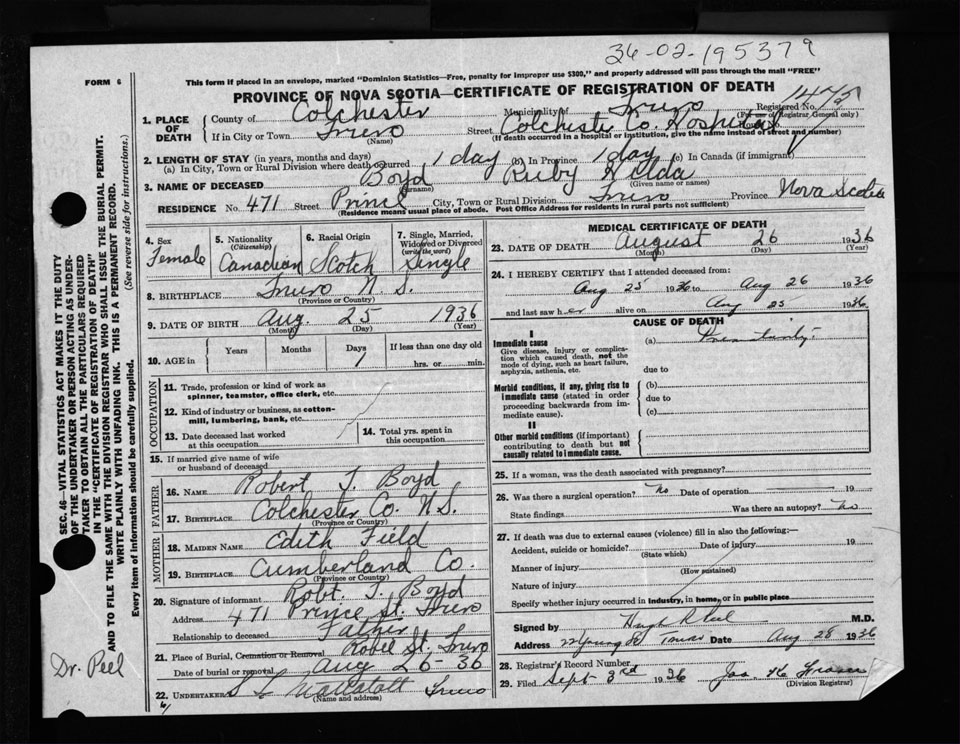 36-02-195379
FORM 6
This form if placed in an envelope, marked "Dominion Statistics—Free, penalty for improper use $300," and properly addressed will pass through the mail "FREE"
PROVINCE OF NOVA SCOTIA—CERTIFICATE OF REGISTRATION OF DEATH
Registered No.
(For use of Registrar General only)
1. PLACE OF DEATH
County of Colchester Municipality of Truro
If in City or Town Truro Street Colchester Co. Hospital
(Name) (If death occurred in a hospital or institution, give the name instead of street and number)
2. LENGTH OF STAY (in years, months and days)
(a) In City, Town or Rural Division where death occurred 1 day (b) In Province 1 day (c) In Canada (if immigrant)
3. NAME OF DECEASED Boyd Ruby Hilda
(Surname) (Given name or names)
RESIDENCE No. 471 Street Prince City, Town or Rural Division Truro Province Nova Scotia
(Residence means usual place of abode. Post Office Address for residents in rural parts not sufficient)
4. Sex Female
5. Nationality (Citizenship) Canadian
6. Racial Origin Scotch
7. Single, Married, Widowed or Divorced (write the word) Single
8. BIRTHPLACE Truro N.S.
(Province or Country)
9. DATE OF BIRTH Aug. 25 1936
(Month) (Day) (Year)
10. AGE in Years Months Days 1 If less than one day old hrs. or min.
OCCUPATION
11. Trade, profession or kind of work as spinner, teamster, office clerk, etc.
12. Kind of industry or business, as cotton-mill, lumbering, bank, etc.
13. Date deceased last worked at this occupation
14. Total yrs. spent in this occupation
15. If married give name of wife or husband of deceased
FATHER
16. NAME Robert J. Boyd
17. BIRTHPLACE Colchester Co. N.S.
(Province or Country)
MOTHER
18. MAIDEN NAME Edith Field
19. BIRTHPLACE Cumberland Co.
(Province or Country)
20. Signature of informant Robt. J. Boyd
Address 471 Prince St. Truro
Relationship to deceased Father
21. Place of Burial, Cremation or Removal Robie St, Truro
Date of burial or removal Aug 26-36
22. UNDERTAKER Truro
(Name and address)
MEDICAL CERTIFICATE OF DEATH
23. DATE OF DEATH August 26 1936
(Month) (Day) (Year)
24. I HEREBY CERTIFY that I attended deceased from:
Aug 25 1936 to Aug 26 1936
and last saw her alive on Aug 25 1936.
CAUSE OF DEATH
I
Immediate cause
Give disease, injury or complication which caused death, not the mode of dying, such as heart failure, asphyxia, asthenia, etc.
(a) Prematurity
due to
Morbid conditions, if any, giving rise to immediate cause (stated in order proceeding backwards from immediate cause).
(b)
due to
(c)
II
Other morbid conditions (if important) contributing to death but not causally related to immediate cause.
25. If a woman, was the death associated with pregnancy?
26. Was there a surgical operation? No Date of operation 19
State findings Was there an autopsy? No
27. If death was due to external causes (violence) fill in also the following:—
Accident, suicide or homicide? Date of injury 19
(State which)
Manner of injury
(How sustained)
Nature of injury
Specify whether injury occurred in industry, in home, or in public place
Signed by Hugh R Peel M.D.
Address Truro Date Aug 28 1936
28. Registrar's Record Number
29. Filed Sept 3rd 1936 Fraser
(Division Registrar)
SEC. 46—VITAL STATISTICS ACT MAKES IT THE DUTY
OF THE UNDERTAKER OR PERSON ACTING AS UNDER-
TAKER TO OBTAIN ALL THE PARTICULARS REQUIRED
IN THE "CERTIFICATE OF REGISTRATION OF DEATH"
AND TO FILE THE SAME WITH THE DIVISION REGISTRAR WHO SHALL ISSUE THE BURIAL PERMIT.
WRITE PLAINLY WITH UNFADING INK. THIS IS A PERMANENT RECORD.
Every item of information should be carefully supplied. (See reverse side for instructions.)
Dr. Peel